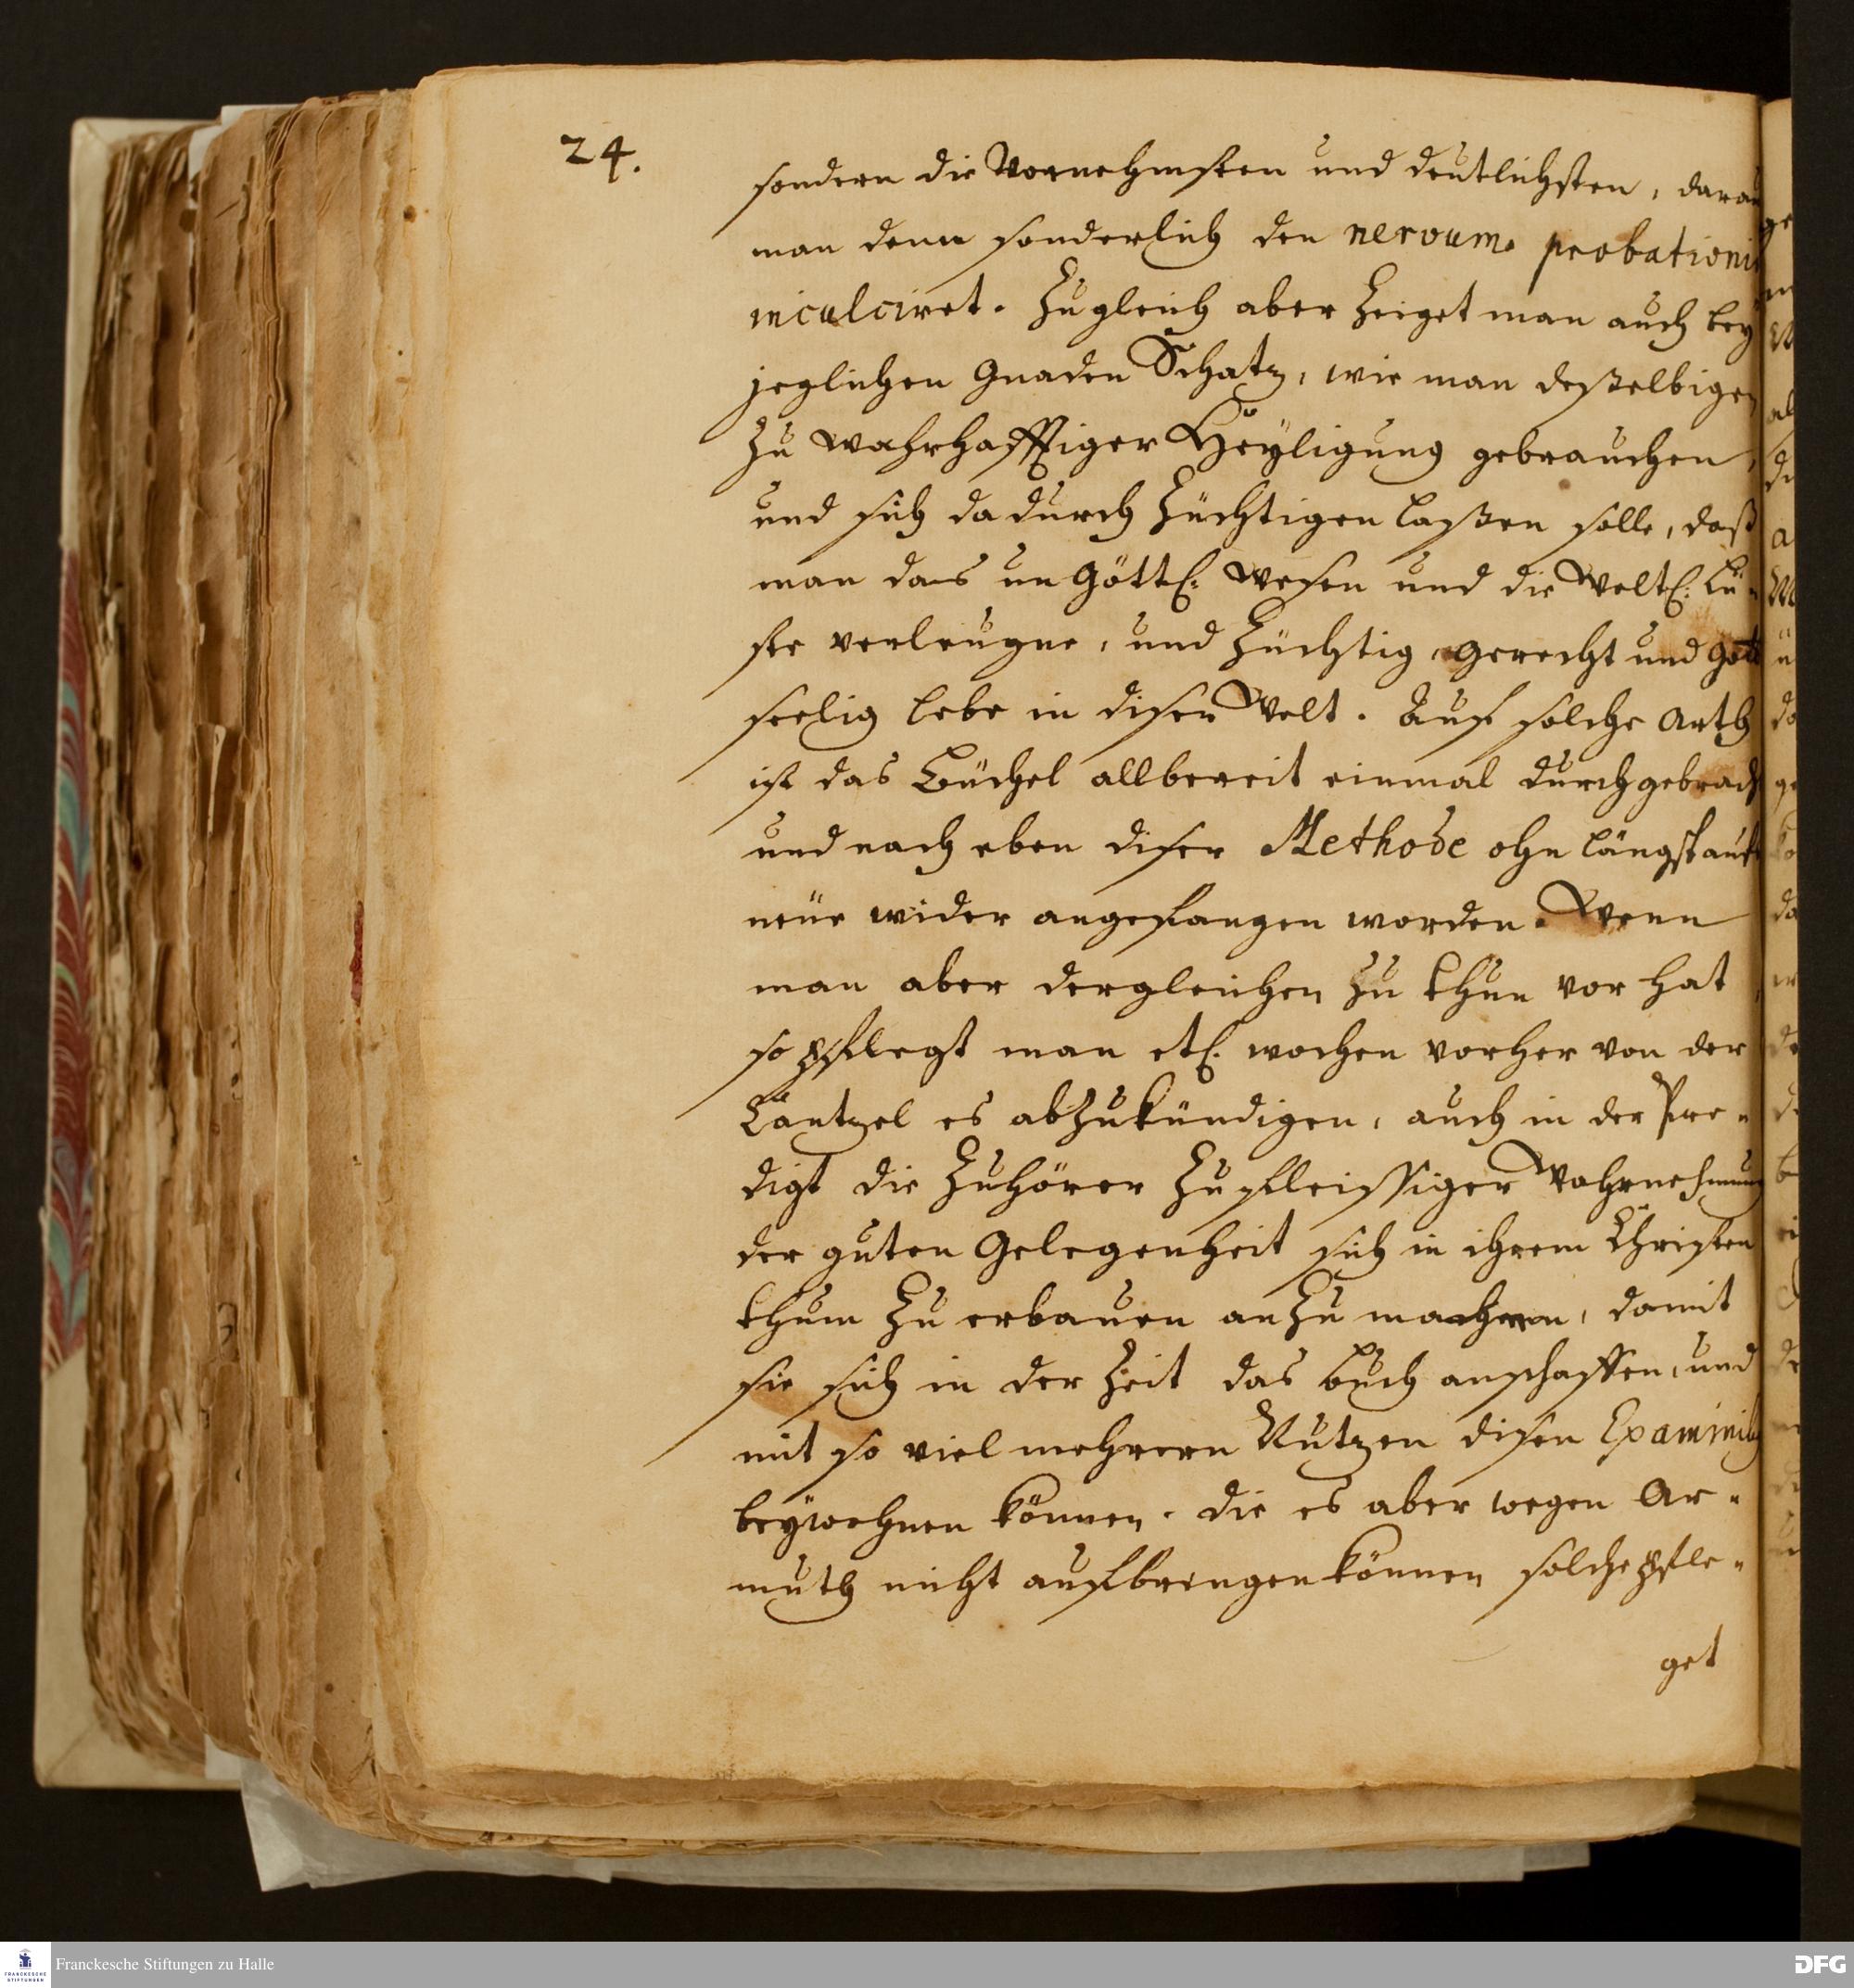 24.
sondern die Vornehmsten und deutlichsten, darau
man denn sonderlich den nervum probationis
inculciret. Zugleich aber zeiget man auch bey
jeglichen Gnaden Schatz, wie man deßelbigen
zu wahrhafftiger Heyligung gebrauchen,
und sich dadurch züchtigen laßen solle, daß
man das un Göttl: Wesen und die Weltl: Lü-
ste verleugne, und züchtig, gerecht und Gott
seelig lebe in diser Welt. Auf solche Arth
ist das Büchel allbereit einmal durchgebrach
und nach eben diser Methode ohn längst aufs
neüe wider angefangen worden. Wenn
man aber dergleichen zu thun vor hat,
so pflegt man etl. wochen vorher von der
Cantzel es abzukündigen, auch in der Pre-
digt die Zuhörer zu fleissiger Wahrnehmung
der guten Gelegenheit sich in ihrem Christen
thum zu erbauen anzumachnen, damit
sie sich in der Zeit das buch anschaffen, und
mit so viel mehrern Nutzen disen Examinib
beÿwohnen können. Die es aber wegen Ar-
muth nicht aufbringen können solche pfle-
get
Franckesche Stiftungen zu Halle
DFG